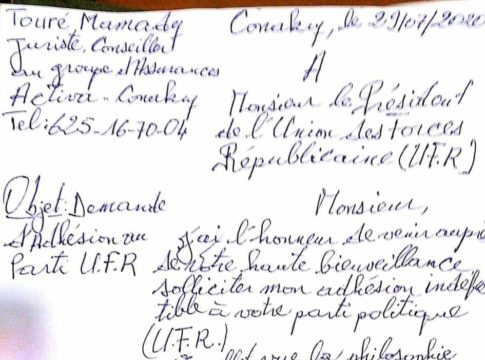 Touré Mamady
Juriste, Conseiller
au groupe d'Assurances
Activa - Conakry
Tel: 625-16-70-04
Conakry, le 29/07/2020
A
Monsieur le Président
de l'Union des Forces
Républicaine (U.F.R)
Objet: Demande
d'Adhésion au
Parti U.F.R
Monsieur,
J'ai l'honneur de venir auprè
de votre haute bienveillance
solliciter mon adhésion indéfe
tible à votre parti politique
(U.F.R.)
que la philosophie